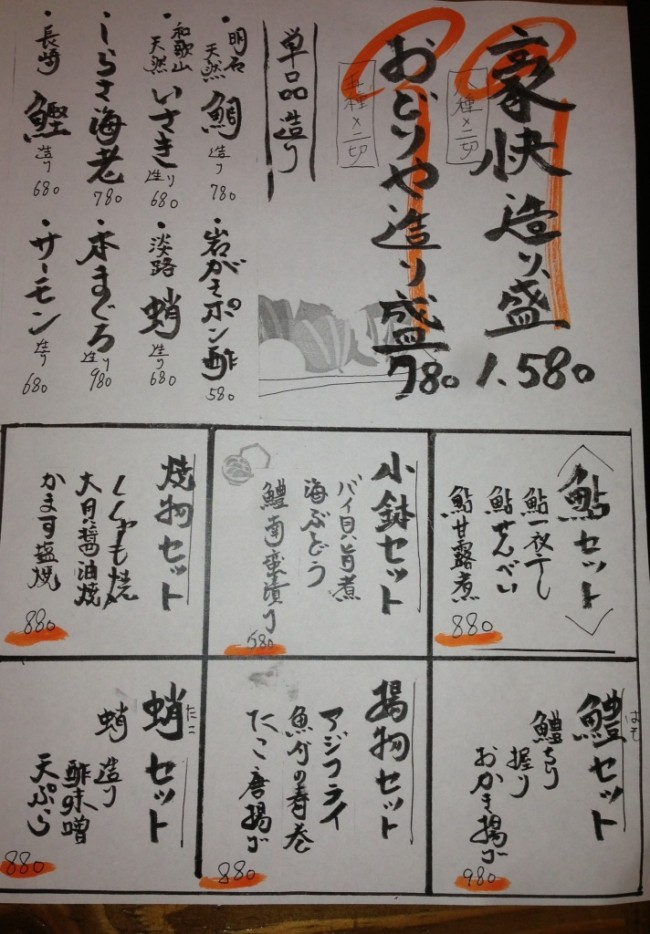 豪快造り盛
種×二切
1.580
おどりや造り盛
種×二切
780
単品造り
・明石天然鯛造り780
・和歌山天然いさき造り680
・しらさ海老780
・長崎鰹造り680
・岩がきポン酢580
・淡路蛸造り680
・本まぐろ造り980
・サーモン造り680
鮎セット
鮎一夜干し
鮎せんべい
鮎甘露煮
880
小鉢セット
バイ貝旨煮
海ぶどう
鱧南蛮漬け
580
焼物セット
ししゃも焼
大貝醤油焼
かます塩焼
880
鱧セット
はも
鱧ちり
握り
おかき揚げ
980
揚物セット
アジフライ
たこ唐揚げ
880
蛸セット
たこ
蛸造り
酢味噌
天ぷら
880